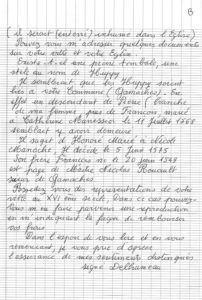 B
( il serait (enterré) inhumé dans l'Eglise)
Pouvez vous m'adresser quelques documents
sur votre ville et votre Eglise.
Existe t-il une pierre tombale, une
stèle au nom de Huppy
Il semblerait que les Huppy soient
liés à votre Commune (Gamaches). En
effet un descendant de Pierre (branche
de ma femme) pris de François marié
à Catherine le 11 Juillet 1568
semblait y avoir demeuré.
Il s'agit de Honoré Marié à Nicole
Il décède le 5 Juin 1575
Son frère François né le 20 juin 1549
est page de Maître Nicolas Rouault
sieur de Gamaches.
Possédez vous des représentations de votre
ville au XVI ème siècle, dans ce cas pouvez
vous m'en faire parvenir une reproduction
en m'indiquant la façon de rembourser
vos frais.
Dans l'espoir de vous lire et en vous
remerciant, je vous prie d'agréer
l'assurance de mes sentiments distingués
signé